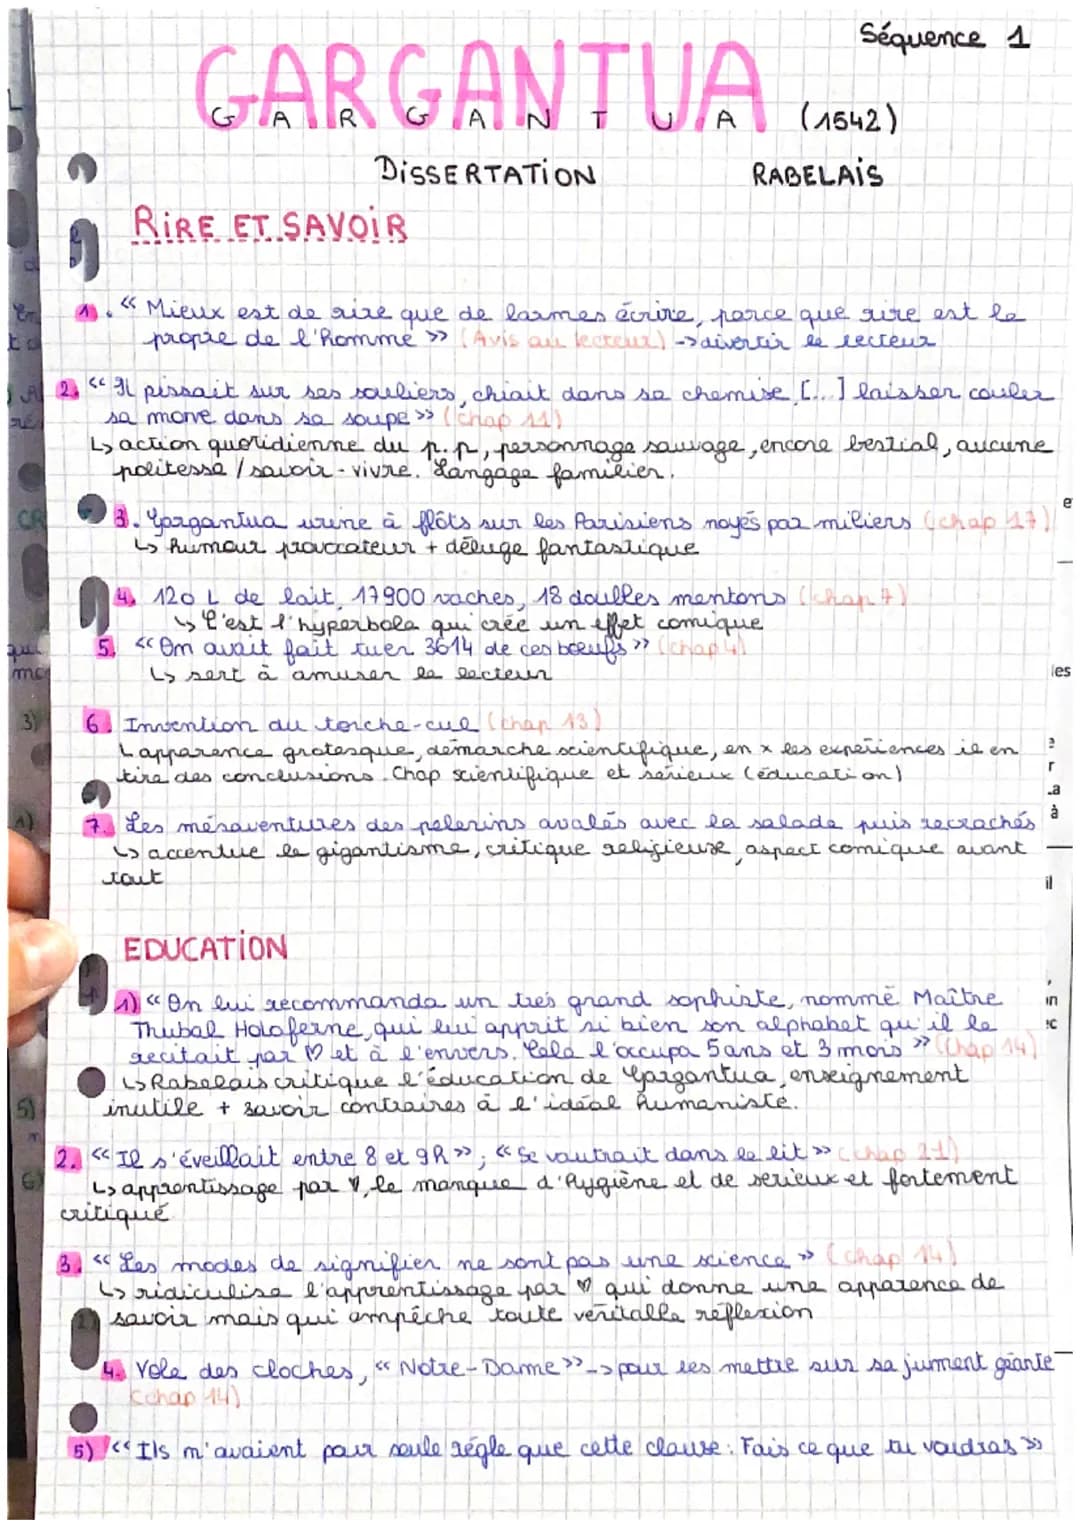 Séquence 1
GARGANTUA
G A R G A N T U A (1542)
DISSERTATION RABELAIS
RIRE ET SAVOIR
1. « Mieux est de rire que de larmes écrire, parce que rire est le
propre de l'homme » (Avis au lecteur) -> divertir le lecteur
2. « Il pissait sur ses souliers, chiait dans sa chemise, [...] laisser couler
sa morve dans sa soupe » (chap 11)
↳ action quotidienne du p.p, personnage sauvage, encore bestial, aucune
politesse / savoir-vivre. Langage familier.
3. Gargantua urine à flôts sur les Parisiens noyés par miliers (chap 17)
↳ humour provocateur + déluge fantastique
4. 120 L de lait, 17900 vaches, 18 doubles mentons (chap 7)
↳ C'est l'hyperbole qui crée un effet comique
5. « On avait fait tuer 3614 de ces boeufs » (chap 4)
↳ sert à amuser le lecteur
6. Invention du torche-cul (chap 13)
↳ apparence grotesque, démarche scientifique, en x les expériences il en
tire des conclusions. Chap scientifique et sérieux (éducation)
7. Les mésaventures des pelerins avalés avec la salade puis recrachés
↳ accentue le gigantisme, critique religieuse, aspect comique avant
tout
EDUCATION
1) « On lui recommanda un très grand sophiste, nommé Maître
Thubal Holoferne, qui lui apprit si bien son alphabet qu'il le
récitait par ♡ et à l'envers. Cela l'occupa 5 ans et 3 mois » (chap 14)
↳ Rabelais critique l'éducation de Gargantua, enseignement
inutile + savoir contraires à l'idéal humaniste.
2. « Il s'éveillait entre 8 et 9h » ; « Se vautrait dans le lit » (chap 21)
↳ apprentissage par ♡, le manque d'hygiène et de serieux et fortement
critiqué
3. « Les modes de signifier ne sont pas une science » (chap 14)
↳ ridiculise l'apprentissage par ♡ qui donne une apparence de
savoir mais qui empêche toute véritable réflexion
4. Vole des cloches, « Notre-Dame » -> pour les mettre sur sa jument géante
(chap 14)
5) « Ils m'avaient pour seule régle que cette clause : Fais ce que tu voudras »